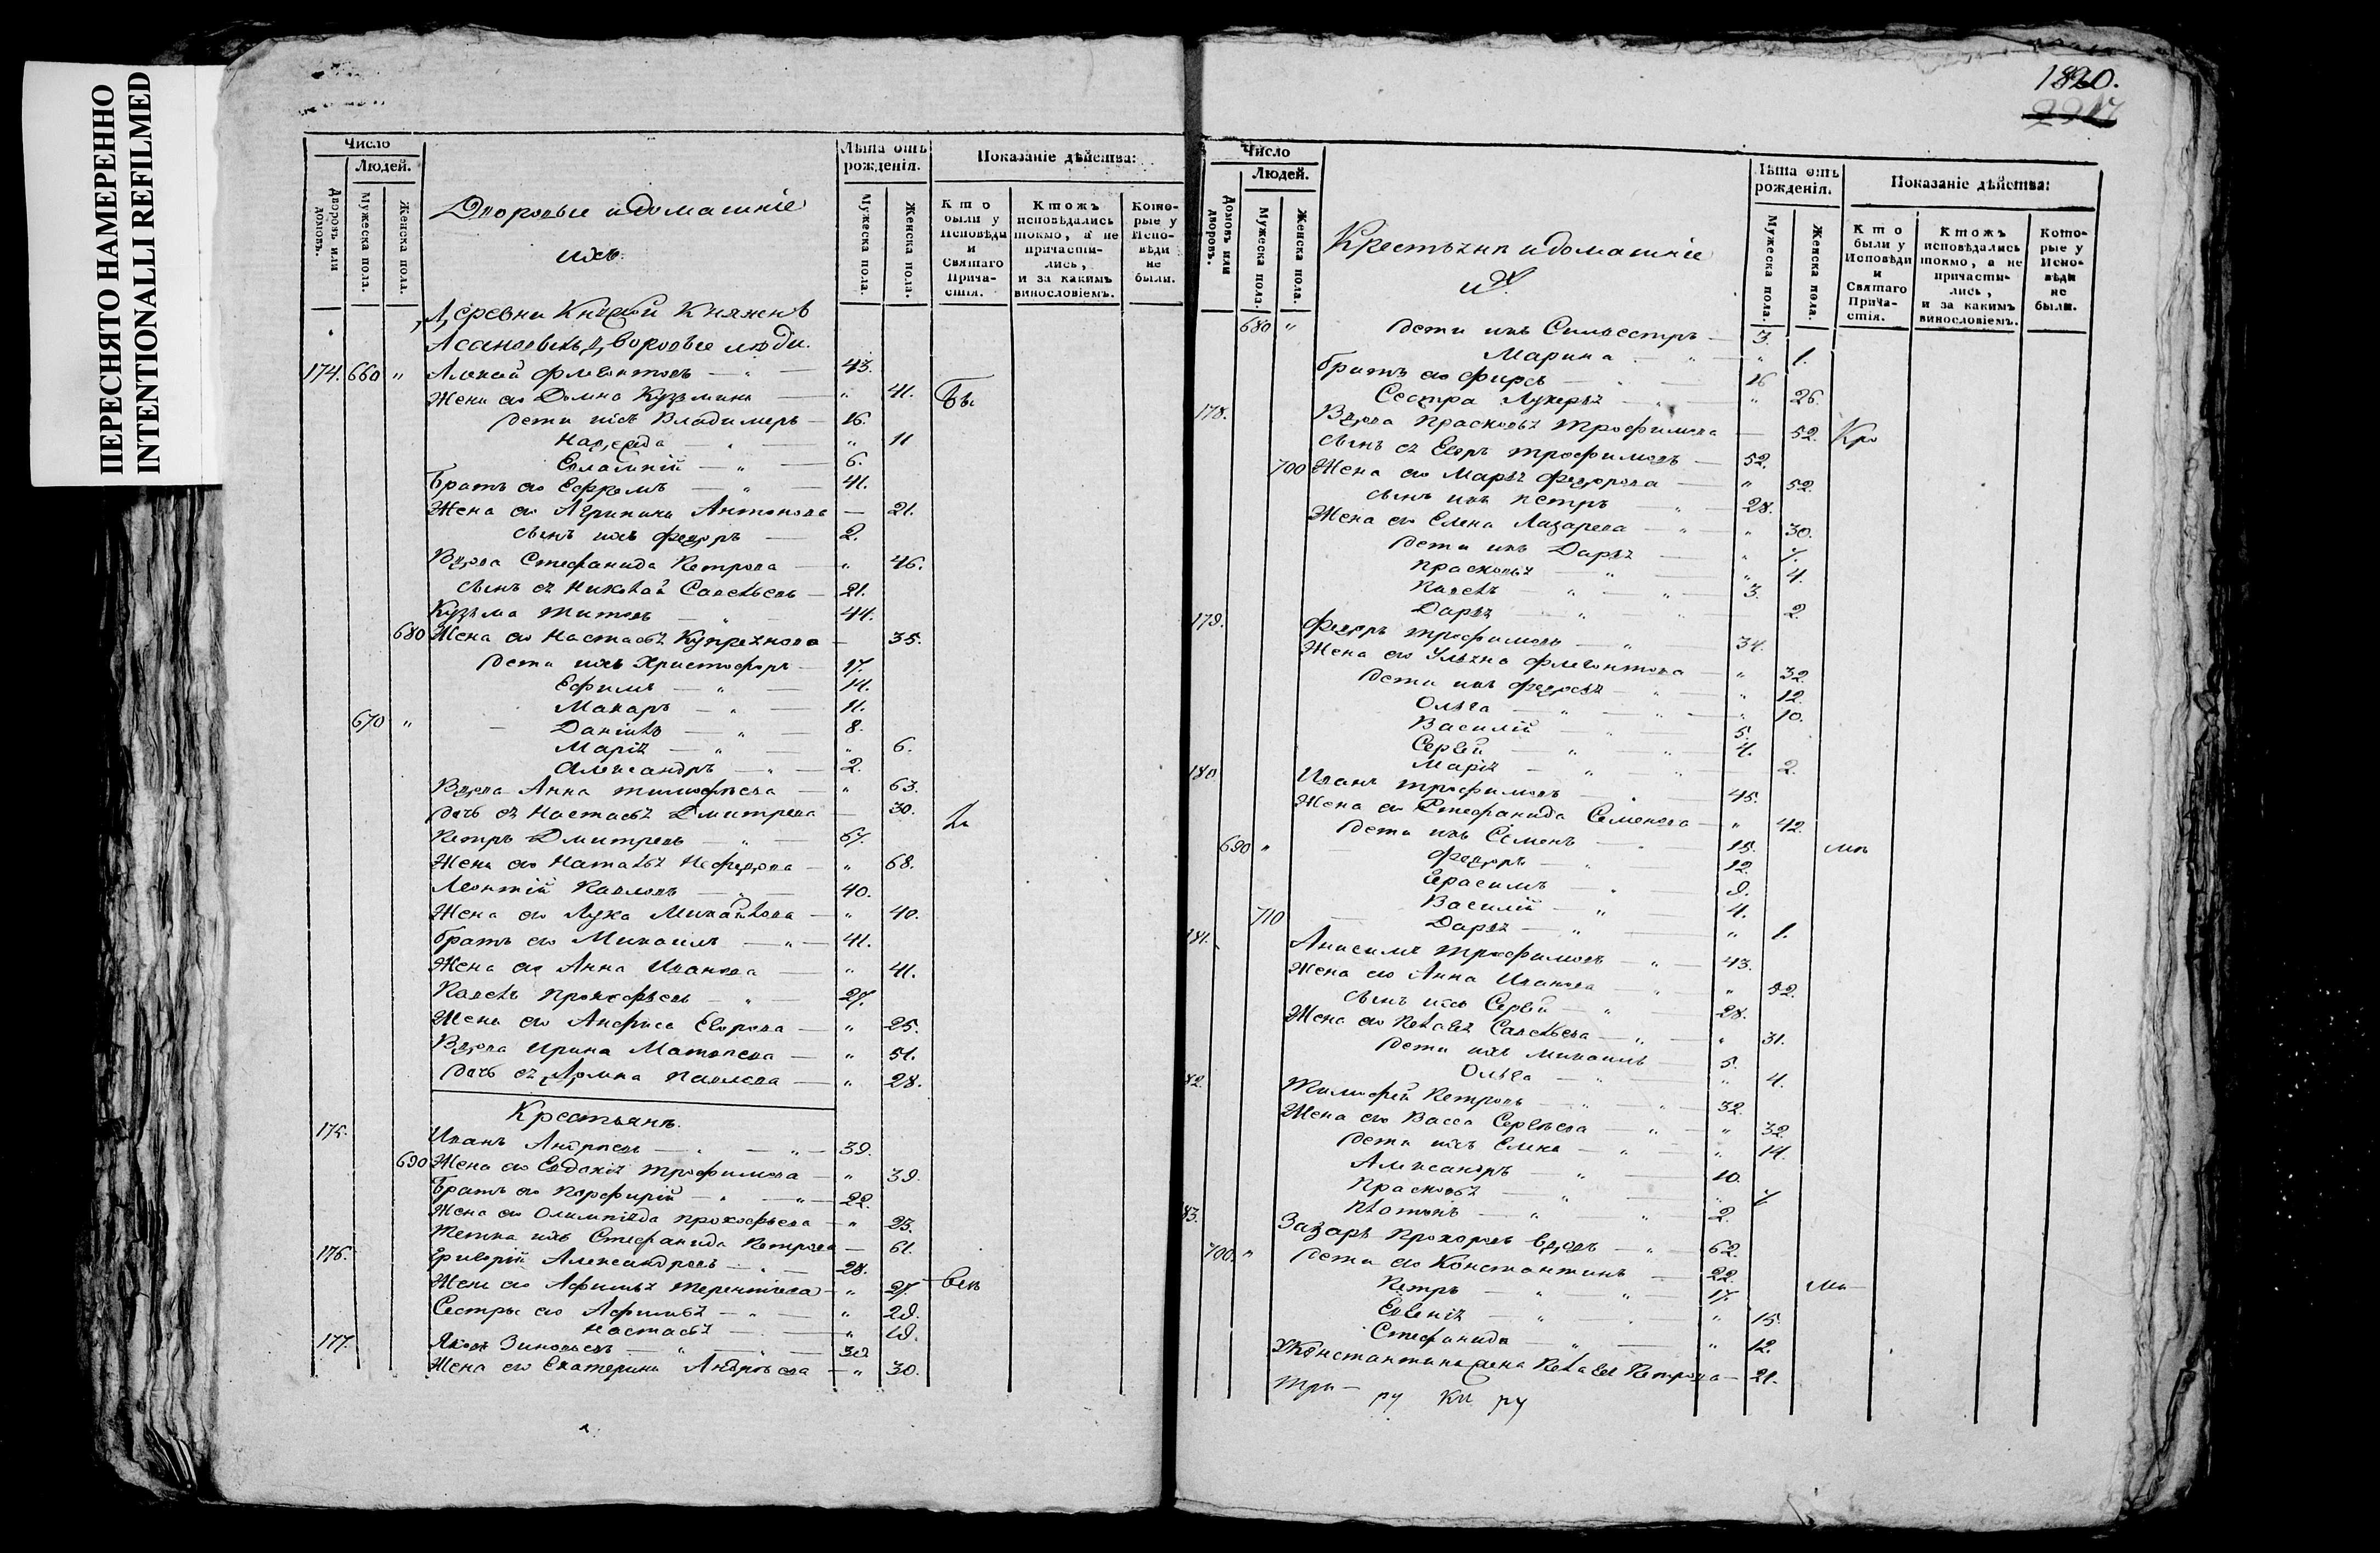 ПЕРЕСНЯТО НАМЕРЕННО
INTENTIONALLI REFILMED
Число
Людей.
Дворовъ или домовъ.
Мужеска пола.
Женска пола.
Дворовые и домашніе
ихъ.
Лѣта отъ рожденія.
Мужеска пола.
Женска пола.
Показаніе дѣйства:
Кто были у Исповѣди и Святаго Причастія.
Ктожъ исповѣдались токмо, а не причастились, и за какимъ винословіемъ.
Которые у Исповѣди не были.
Деревни
дворовые люди.
174. 660 " Флегонтовъ — " — 43.
Жена его Домна Кузьмина — " 41. Бы
Дети ихъ Владимеръ — 16.
Надежда — " — " 11
Евлампій — " — 6.
Братъ его Ефремъ — " — 41.
Жена его Агрипина Антонова — 21.
Сынъ ихъ Федоръ — 2.
Вдова Стефанида Петрова — " 46.
Сынъ ея Николай Савельевъ — 21.
Кузьма Титовъ — " — 44.
680 Жена его Настасья Купреянова — 35.
Дети ихъ Христофоръ — 17.
Ефимъ — " — 14.
Макаръ — " — 11.
670 " — Данiилъ — " — 8.
Марія — " — " 6.
Александръ — " — 2.
Вдова Анна Тимофѣева — " 63.
Дочь ея Настасья Дмитрева — 30.
Петръ Дмитревъ — " — 67.
Жена его Наталья Нефедова — " 68.
Леонтій Павловъ — " — 40.
Жена его Михайлова — " 40.
Братъ его Михаилъ — " — 41.
Жена его Анна Иванова — " 41.
Павелъ Прокофьевъ — " — 27.
Жена его Анфиса Егорова — " 25.
Вдова Ирина Матвѣева — " 51.
Дочь ея Домна Павлова — " 28.
Крестьянъ.
175. Иванъ Андреевъ — " — " — 39.
690 Жена его Евдокія Трофимова — " 39.
Братъ его Порфирій — " — " — 22.
Жена его Олимпіада Прокофьева — " 23.
Тетка ихъ Стефанида Петрова — 61.
176. Григорій Александровъ — " — 28.
Жена его Афимья Терентьева — " 27.
Сестры его Афимья — " — " 29.
Настасья — " 19.
177. Яковъ Зиновьевъ — " — " — 30
Жена его Екатерина Андрѣева — " 30.
1820.
Число
Людей.
Домовъ или дворовъ.
Мужеска пола.
Женска пола.
Крестьяня и домашніе
их.
Лѣта отъ рожденія.
Мужеска пола.
Женска пола.
Показаніе дѣйства:
Кто были у Исповѣди и Святаго Причастія.
Ктожъ исповѣдались токмо, а не причастились, и за какимъ винословіемъ.
Которые у Исповѣди не были.
680 " Дети ихъ Сильвестръ — 3.
Марина — " — " 1.
Братъ его Фирсъ — " — 16
Сестра Лукерья — " — " 26.
178. Вдова Прасковья Трофимова — 52. Кро
Сынъ ея Егоръ Трофимовъ — 52.
700 Жена его Марья Федорова — " 52.
Сынъ ихъ Петръ — " — 28.
Жена его Елена Лазарева — " " 30.
Дети ихъ Дарья — " 7.
Прасковья — " — " 4.
Павелъ — " — " — 3.
Дарья — " — " 2.
179. Федоръ Трофимовъ — " — 34.
Жена его Ульяна Флегонтова — " 32.
Дети ихъ Федосья — " — " 12.
Ольга — " — " — " 10.
Василій — " — 5.
Сергей — " — " — 4.
Марія — " — " — 2.
180. Иванъ Трофимовъ — " — 45.
Жена его Стефанида Семенова — " 42.
Дети ихъ Семенъ — " — 15.
690 " Федоръ — " — 12.
Герасимъ — " — 9.
Василій — " — 4.
710 — Дарья — " — " 1.
181. Анисимъ Трофимовъ — " — 43.
Жена его Анна Иванова — " — " 52.
Сынъ ихъ Сергей — " — 28.
Жена его Пелагея Савельева — " — " 31.
Дети ихъ Михаилъ — 5.
Ольга — " — " 4.
82. Тимофей Петровъ — " — " — 32.
Жена его Васса Сергѣева — " — " 32.
Дети ихъ Елена — " — " 14.
Александръ — " — 10.
Прасковья — " — " 7.
Платонъ — " — " 2.
83. Захаръ Прохоровъ вдовъ — " — 62.
700. " Дети его Константинъ — 22.
Петръ — " — " — 17.
Евгенія — " — " — " 15.
Стефанида — " — " 12.
Константина жена Пелагея Петрова — 21.